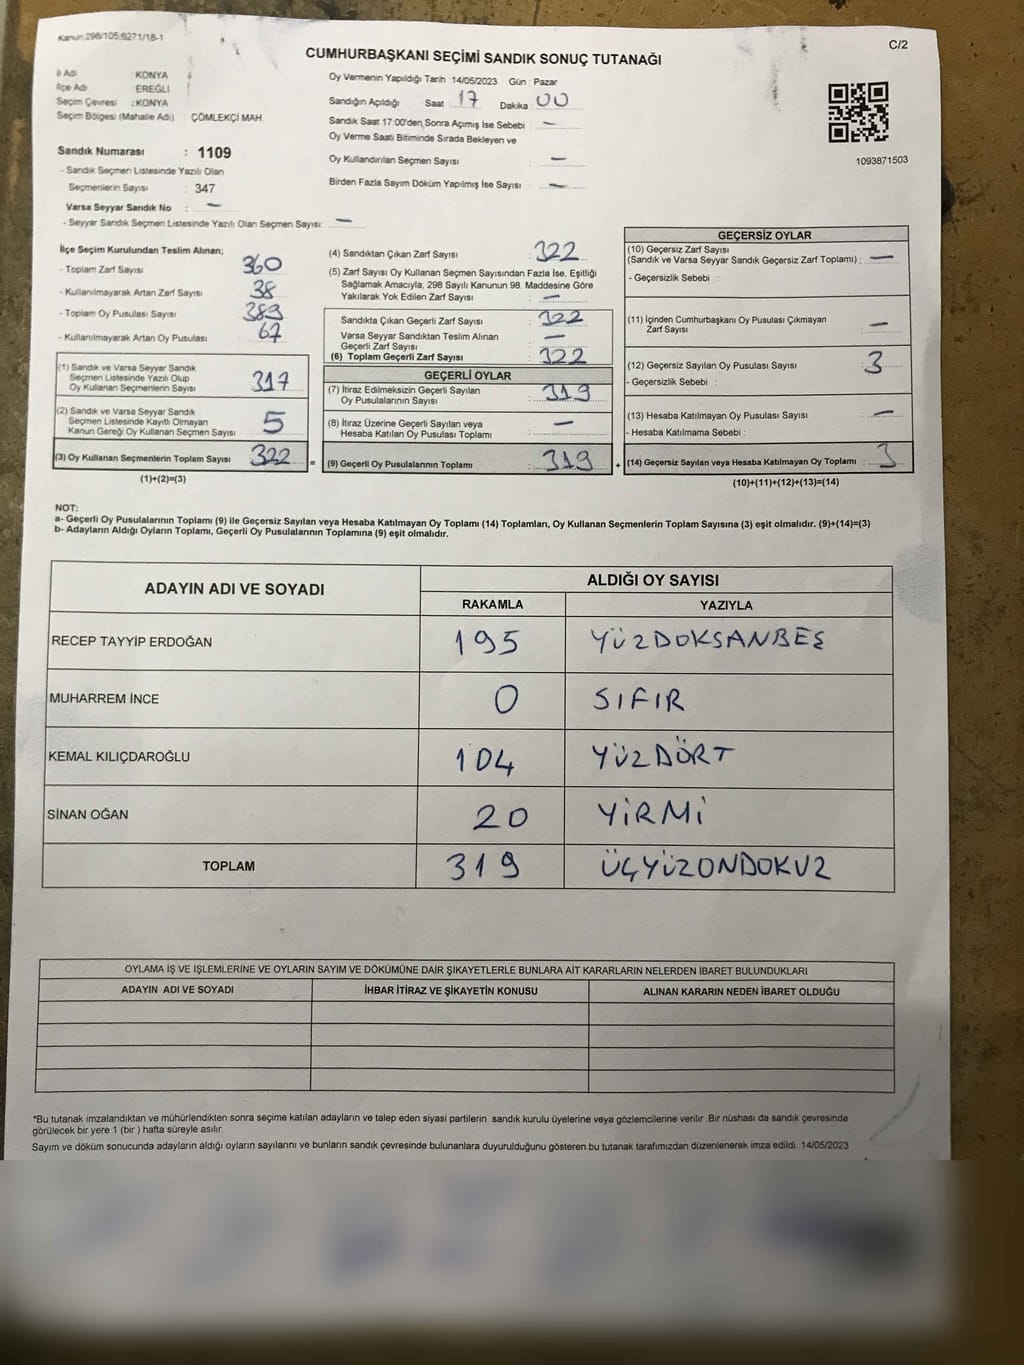 Kanun 298/105,6271/18-1
C/2
CUMHURBAŞKANI SEÇİMİ SANDIK SONUÇ TUTANAĞI
İl Adı KONYA
İlçe Adı : EREĞLİ
Seçim Çevresi : KONYA
Seçim Bölgesi (Mahalle Adı) : ÇÖMLEKÇİ MAH.
Sandık Numarası : 1109
- Sandık Seçmen Listesinde Yazılı Olan
Seçmenlerin Sayısı : 347
Varsa Seyyar Sandık No : —
- Seyyar Sandık Seçmen Listesinde Yazılı Olan Seçmen Sayısı: —
Oy Vermenin Yapıldığı Tarih : 14/05/2023 Gün : Pazar
Sandığın Açıldığı Saat 17 Dakika 00
Sandık Saat 17:00'den Sonra Açımış İse Sebebi : —
Oy Verme Saati Bitiminde Sırada Bekleyen ve
Oy Kullandırılan Seçmen Sayısı : —
Birden Fazla Sayım Döküm Yapılmış İse Sayısı : —
1093871503
İlçe Seçim Kurulundan Teslim Alınan;
- Toplam Zarf Sayısı : 360
- Kullanılmayarak Artan Zarf Sayısı : 38
- Toplam Oy Pusulası Sayısı : 389
- Kullanılmayarak Artan Oy Pusulası : 67
(1) Sandık ve Varsa Seyyar Sandık
Seçmen Listesinde Yazılı Olup
Oy Kullanan Seçmenlerin Sayısı : 317
(2) Sandık ve Varsa Seyyar Sandık
Seçmen Listesinde Kayıtlı Olmayan
Kanun Gereği Oy Kullanan Seçmen Sayısı : 5
(3) Oy Kullanan Seçmenlerin Toplam Sayısı : 322
(1)+(2)=(3)
(4) Sandıktan Çıkan Zarf Sayısı : 322
(5) Zarf Sayısı Oy Kullanan Seçmen Sayısından Fazla İse, Eşitliği
Sağlamak Amacıyla, 298 Sayılı Kanunun 98. Maddesine Göre
Yakılarak Yok Edilen Zarf Sayısı : —
Sandıkta Çıkan Geçerli Zarf Sayısı : 322
Varsa Seyyar Sandıktan Teslim Alınan
Geçerli Zarf Sayısı : —
(6) Toplam Geçerli Zarf Sayısı : 322
GEÇERLİ OYLAR
(7) İtiraz Edilmeksizin Geçerli Sayılan
Oy Pusulalarının Sayısı : 319
(8) İtiraz Üzerine Geçerli Sayılan veya
Hesaba Katılan Oy Pusulası Toplamı : —
= (9) Geçerli Oy Pusulalarının Toplamı : 319
GEÇERSİZ OYLAR
(10) Geçersiz Zarf Sayısı
(Sandık ve Varsa Seyyar Sandık Geçersiz Zarf Toplamı) : —
- Geçersizlik Sebebi :
(11) İçinden Cumhurbaşkanı Oy Pusulası Çıkmayan
Zarf Sayısı : —
(12) Geçersiz Sayılan Oy Pusulası Sayısı : 3
- Geçersizlik Sebebi :
(13) Hesaba Katılmayan Oy Pusulası Sayısı : —
- Hesaba Katılmama Sebebi :
+ (14) Geçersiz Sayılan veya Hesaba Katılmayan Oy Toplamı : 3
(10)+(11)+(12)+(13)=(14)
NOT:
a- Geçerli Oy Pusulalarının Toplamı (9) ile Geçersiz Sayılan veya Hesaba Katılmayan Oy Toplamı (14) Toplamları, Oy Kullanan Seçmenlerin Toplam Sayısına (3) eşit olmalıdır. (9)+(14)=(3)
b- Adayların Aldığı Oyların Toplamı, Geçerli Oy Pusulalarının Toplamına (9) eşit olmalıdır.
ADAYIN ADI VE SOYADI ALDIĞI OY SAYISI
RAKAMLA YAZIYLA
RECEP TAYYİP ERDOĞAN 195 YÜZDOKSANBEŞ
MUHARREM İNCE 0 SIFIR
KEMAL KILIÇDAROĞLU 104 YÜZDÖRT
SİNAN OĞAN 20 YİRMİ
TOPLAM 319 ÜÇYÜZONDOKUZ
OYLAMA İŞ VE İŞLEMLERİNE VE OYLARIN SAYIM VE DÖKÜMÜNE DAİR ŞİKAYETLERLE BUNLARA AİT KARARLARIN NELERDEN İBARET BULUNDUKLARI
ADAYIN ADI VE SOYADI İHBAR İTİRAZ VE ŞİKAYETİN KONUSU ALINAN KARARIN NEDEN İBARET OLDUĞU
*Bu tutanak imzalandıktan ve mühürlendikten sonra seçime katılan adayların ve talep eden siyasi partilerin sandık kurulu üyelerine veya gözlemcilerine verilir. Bir nüshası da sandık çevresinde
görülecek bir yere 1 (bir ) hafta süreyle asılır.
Sayım ve döküm sonucunda adayların aldığı oyların sayılarını ve bunların sandık çevresinde bulunanlara duyurulduğunu gösteren bu tutanak tarafımızdan düzenlenerek imza edildi. 14/05/2023